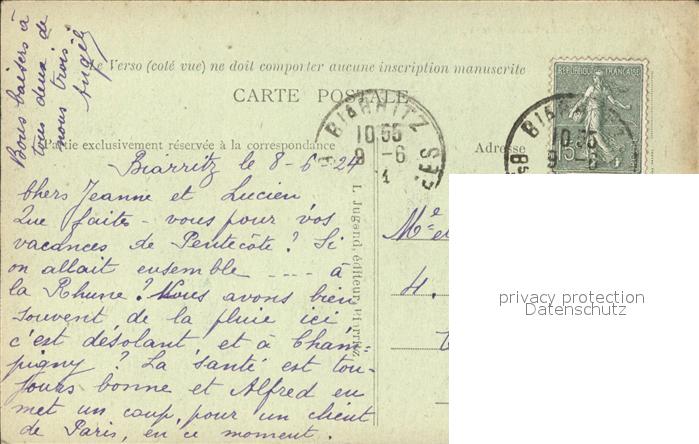 Bons baisers à
tous deux de
nous trois
Le Verso (coté vue) ne doit comporter aucune inscription manuscrite
CARTE POSTALE
Partie exclusivement réservée à la correspondance
Adresse
REPUBLIQUE FRANÇAISE
15
BIARRITZ
10 55
9 -6
BIARR
10 55
9 -6
Biarritz le 8-6-24
Chers Jeanne et Lucien
Que faites-vous pour vos
vacances de Pentecôte? Si
on allait ensemble ---- à
la Rhune? Nous avons bien
souvent de la pluie ici
c'est désolant et à Cham-
pigny? La santé est tou-
jours bonne et Alfred en
met un coup, pour un client
de Paris, en ce moment.
L. Jugand, éditeur, Biarritz
Me et
4.
privacy protection
Datenschutz